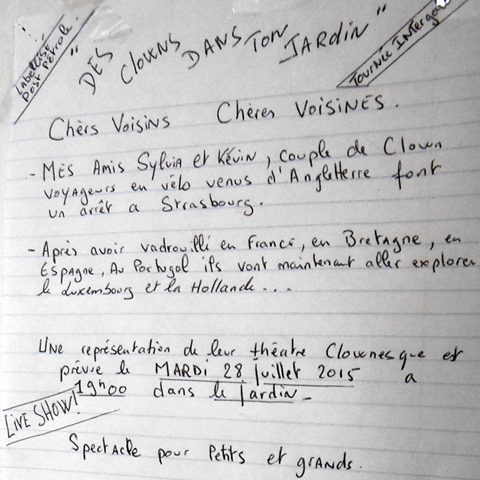 Labellisé
Post Pétrole
"DES CLOWNS DANS TON JARDIN"
Tournée Interga
Chèrs Voisins Chères Voisines.
- Mes Amis Sylvia et Kévin, couple de Clown
voyageurs en vélo venus d'Angletterre font
un arrêt a Strasbourg.
- Après avoir vadrouillé en France, en Bretagne, en
Espagne, Au Portugal ils vont maintenant aller explorer
le Luxembourg et la Hollande...
Une représentation de leur théatre Clownesque et
prévue le MARDI 28 Juillet 2015 a
19h00 dans le Jardin -
LIVE SHOW!
Spectacle pour Petits et grands.